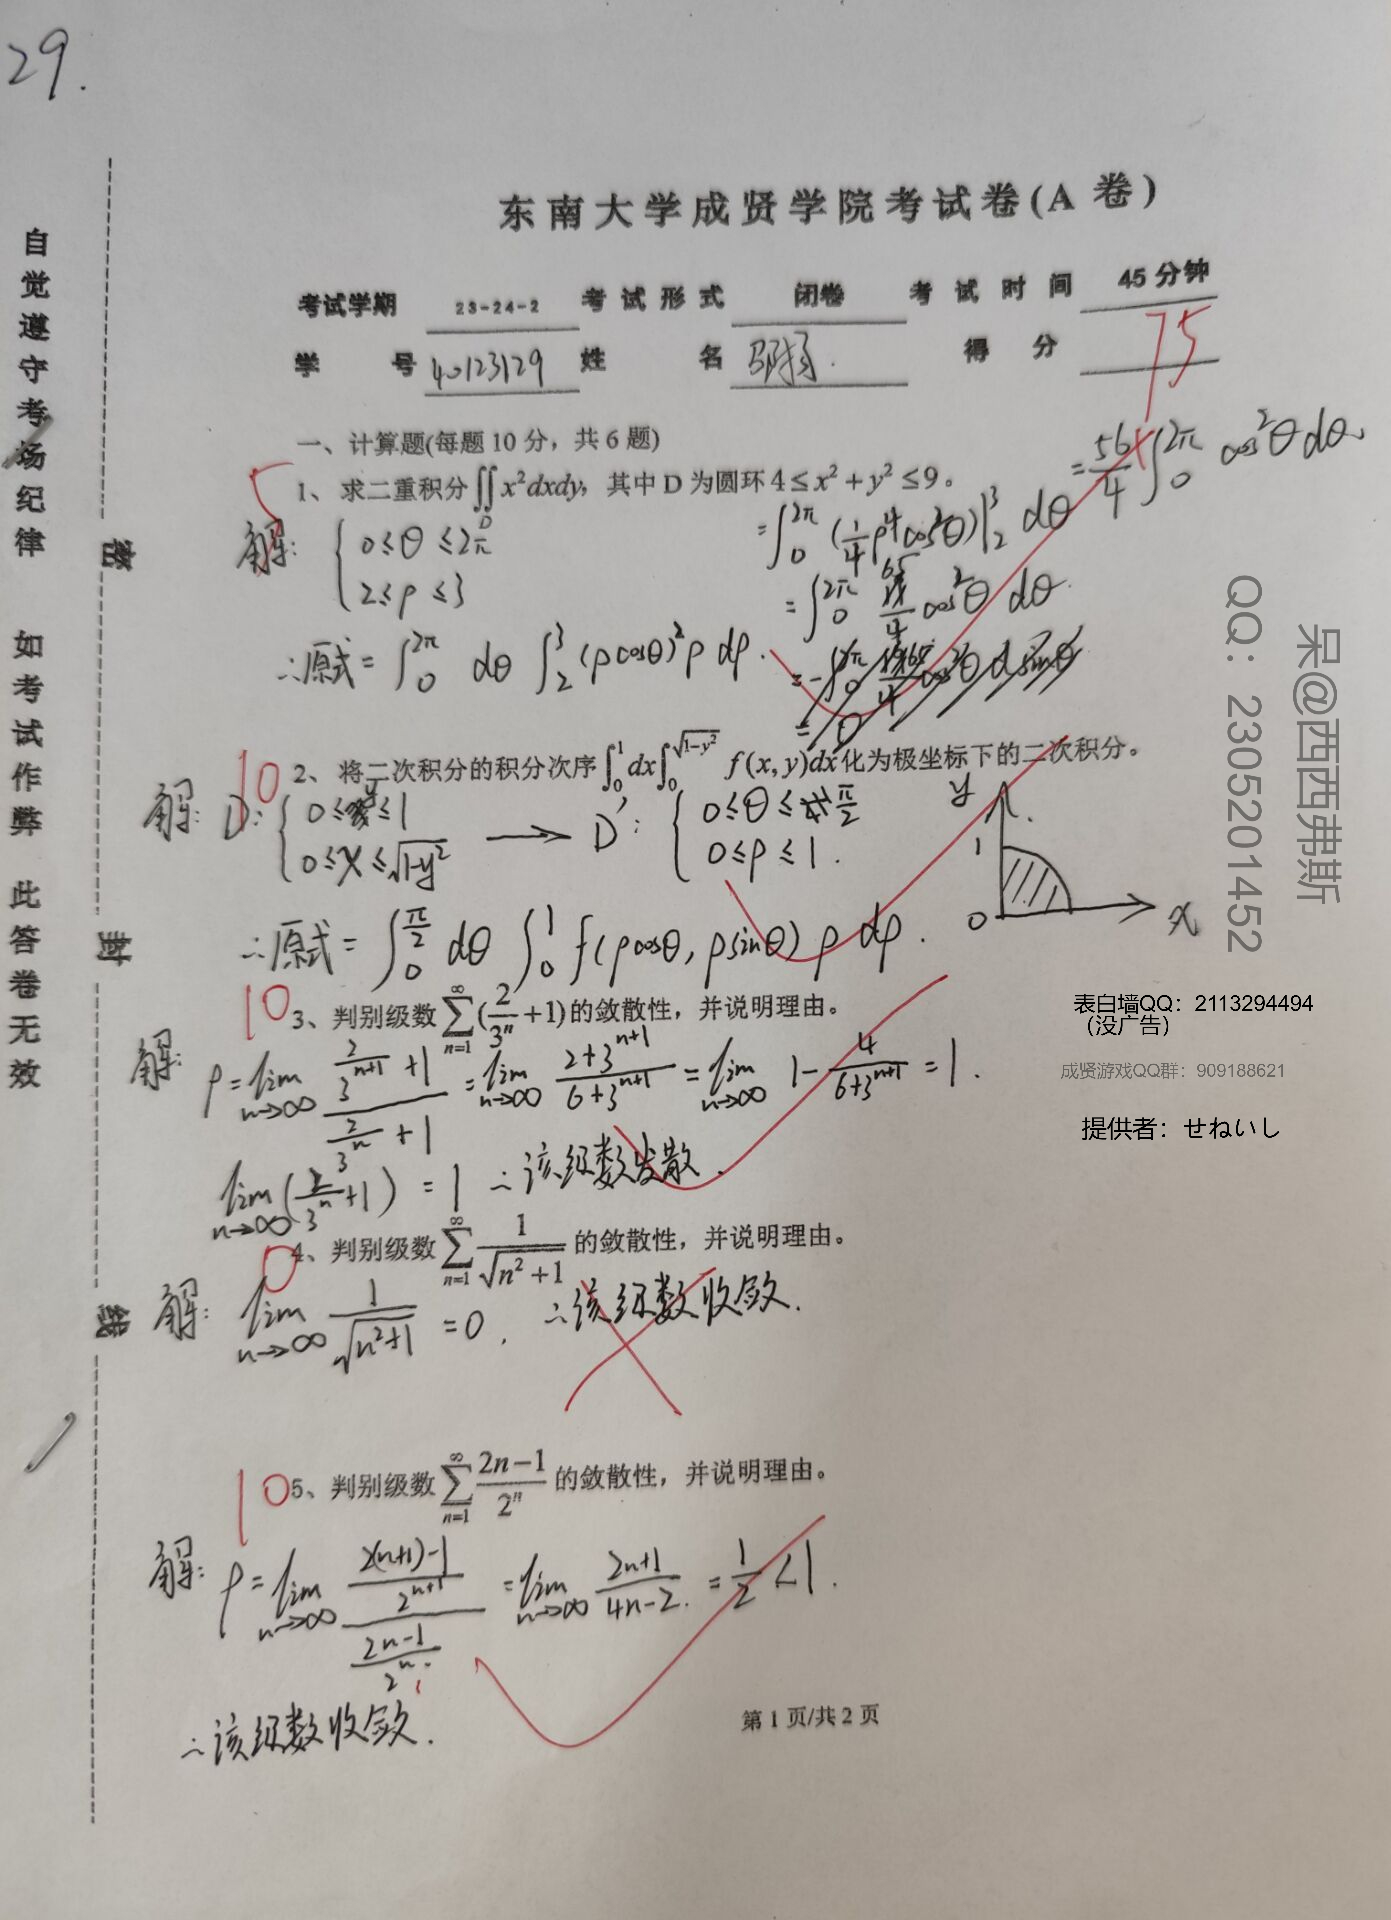 29.
东南大学成贤学院考试卷(A 卷)
考试学期 23-24-2 考试形式 闭卷 考试时间 45分钟
学号 40123129 姓名 得分 75
一、计算题(每题10分，共6题)
5
1、求二重积分∬_D x²dxdy, 其中D为圆环4≤x²+y²≤9。
解: { 0≤θ≤2π
2≤ρ≤3
∴原式=∫_0^{2π} dθ ∫_2^3 (ρcosθ)²ρ dρ.
=∫_0^{2π} (1/4 ρ⁴cos²θ)|_2^3 dθ
=∫_0^{2π} 65/4 cos²θ dθ.
=56/4 ∫_0^{2π} cos²θ dθ.
10
2、将二次积分的积分次序∫_0^1 dx∫_0^{√(1-y²)} f(x,y)dx化为极坐标下的二次积分。
解: D: { 0≤y≤1
0≤x≤√(1-y²)
→ D': { 0≤θ≤π/2
0≤ρ≤1.
y
1
0
x
∴原式=∫_0^{π/2} dθ ∫_0^1 f(ρcosθ, ρsinθ) ρ dρ.
10
3、判别级数∑_{n=1}^∞ (2/3ⁿ+1)的敛散性，并说明理由。
解: ρ=lim_{n→∞} (2/3^{n+1}+1)/(2/3ⁿ+1) =lim_{n→∞} (2+3^{n+1})/(6+3^{n+1}) =lim_{n→∞} 1-4/(6+3^{n+1}) =1.
lim_{n→∞}(2/3ⁿ+1) =1 ∴该级数发散.
0
4、判别级数∑_{n=1}^∞ 1/√(n²+1) 的敛散性，并说明理由。
解: lim_{n→∞} 1/√(n²+1) =0. ∴该级数收敛.
10
5、判别级数∑_{n=1}^∞ (2n-1)/2ⁿ 的敛散性，并说明理由。
解: ρ=lim_{n→∞} ((2(n+1)-1)/2^{n+1})/((2n-1)/2ⁿ) =lim_{n→∞} (2n+1)/(4n-2) =1/2<1.
∴该级数收敛.
第1页/共2页
自觉遵守考场纪律 如考试作弊 此答卷无效
密
封
线
呆@西西弗斯
QQ：2305201452
表白墙QQ：2113294494
（没广告）
成贤游戏QQ群：909188621
提供者：せねいし